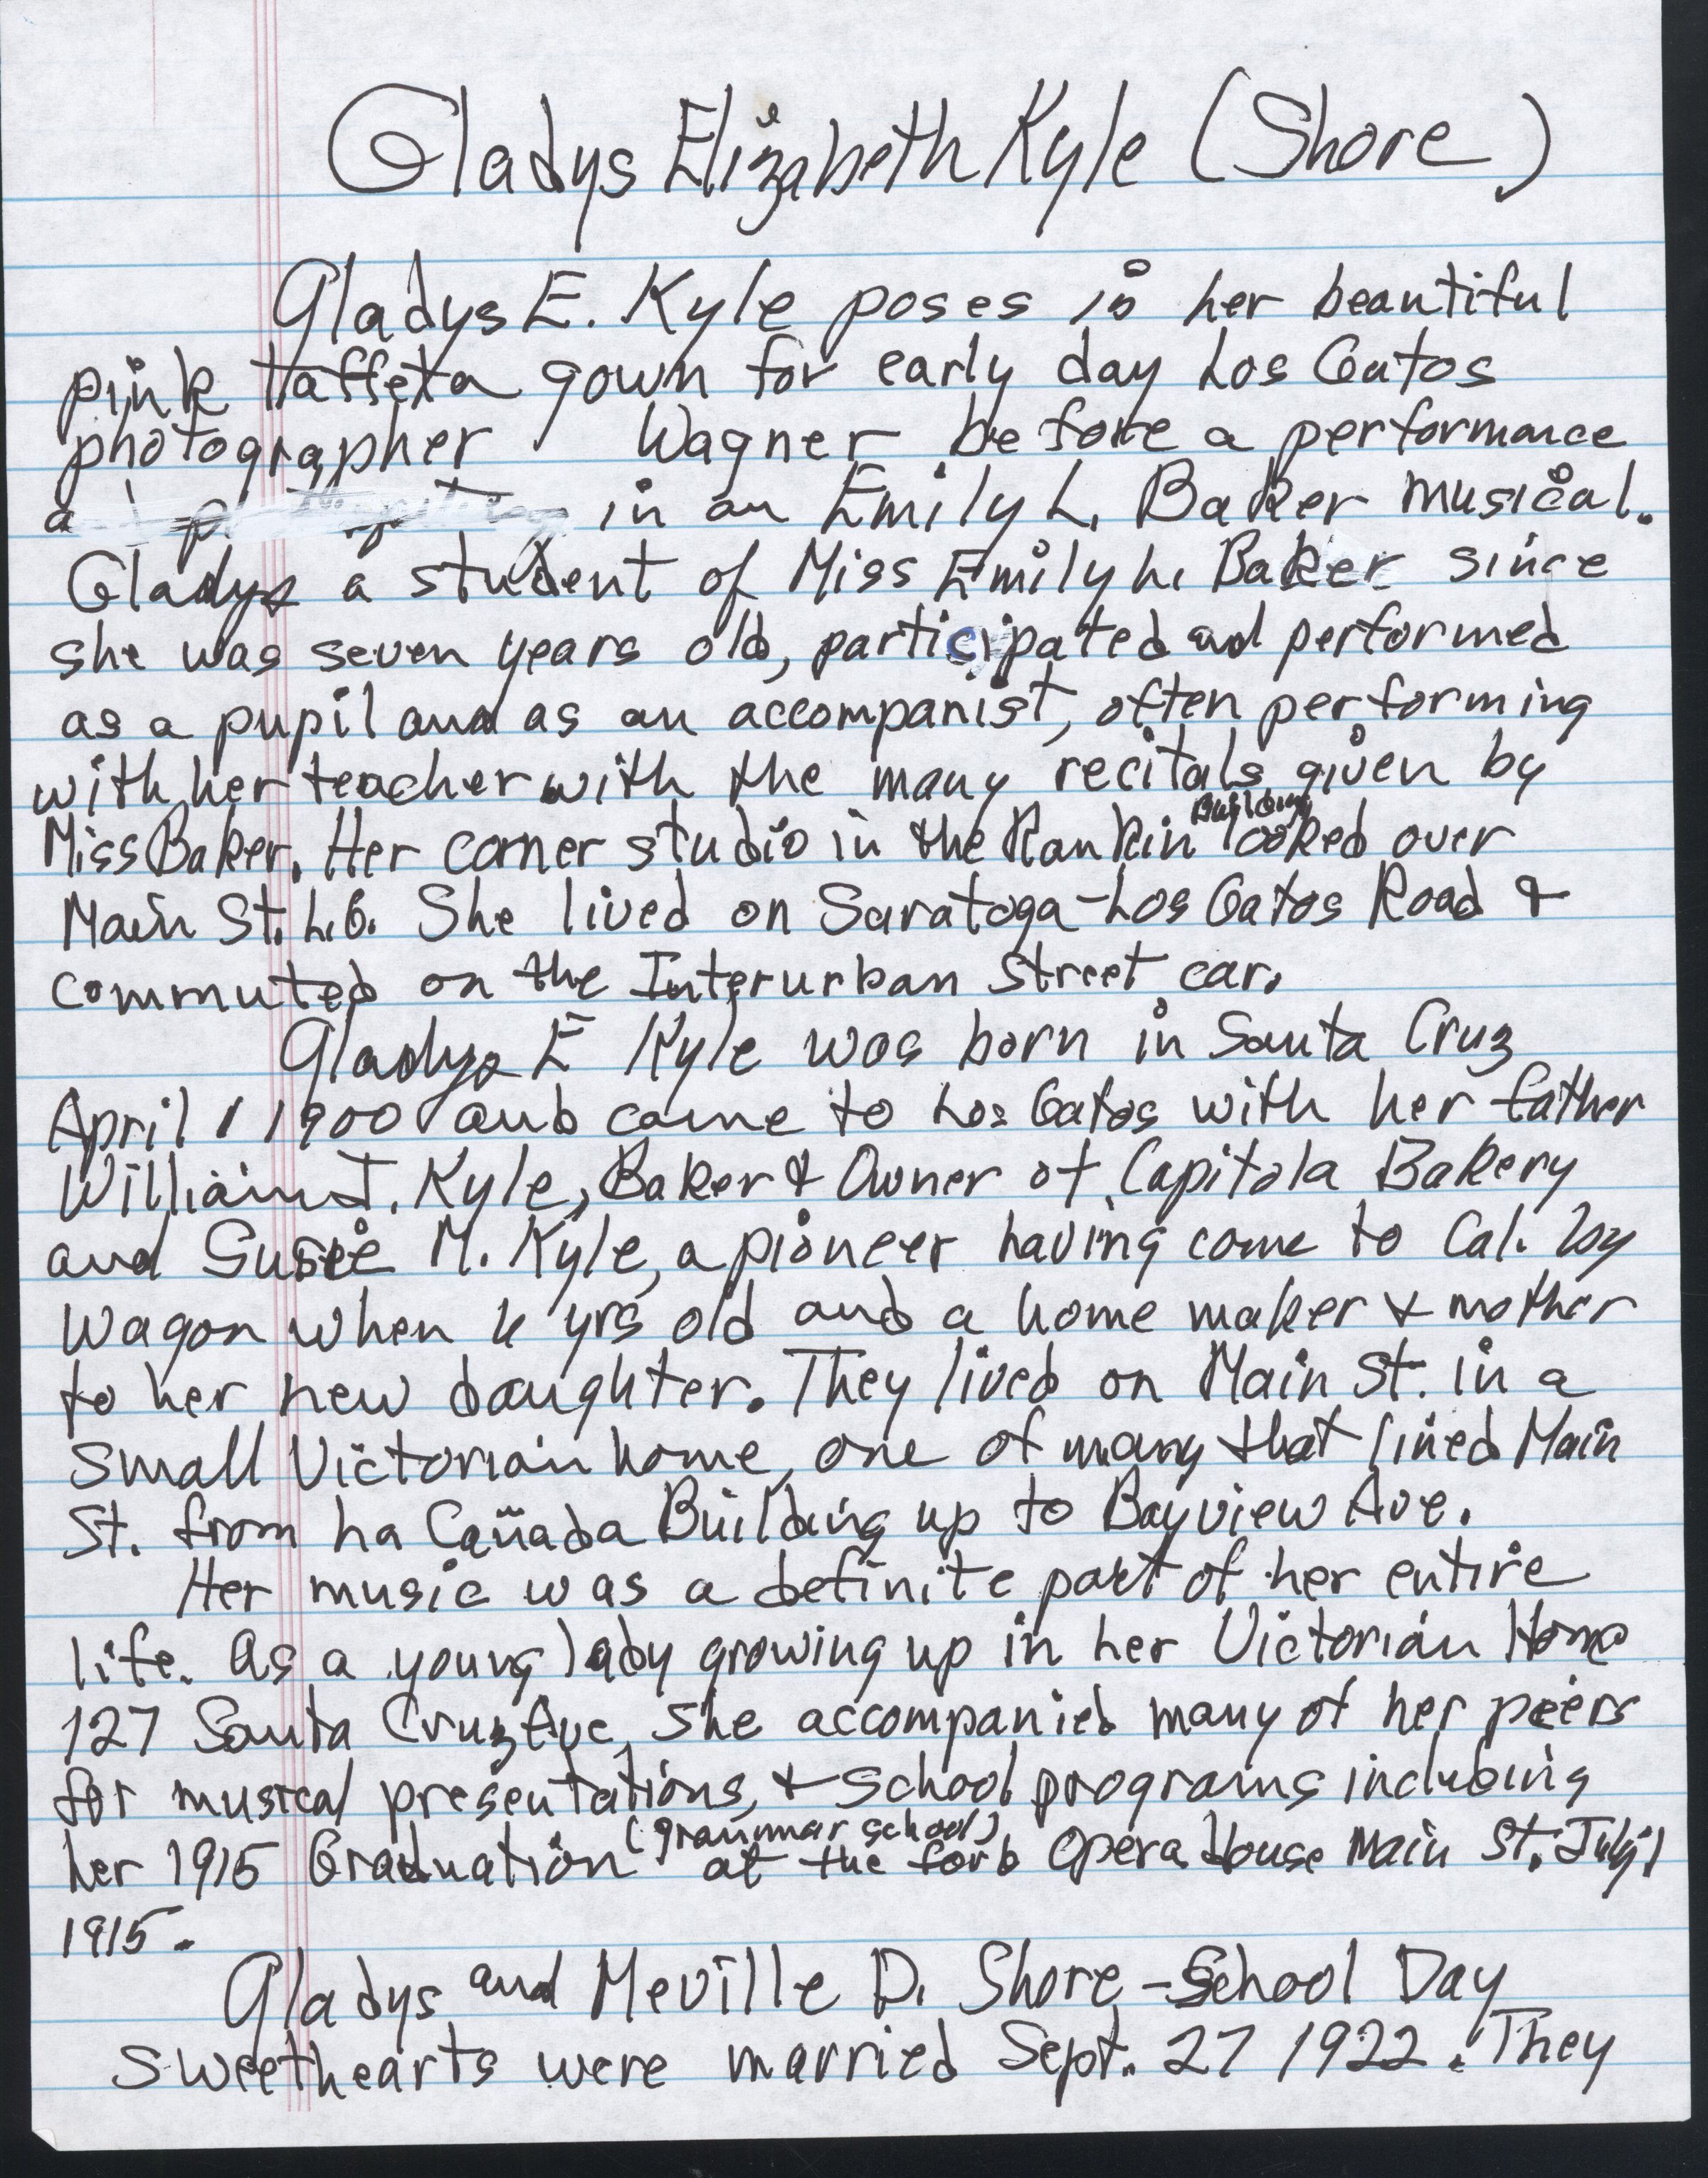 Gladys Elizabeth Kyle (Shore)
Gladys E. Kyle poses in her beautiful
pink taffeta gown for early day Los Gatos
photographer Wagner before a performance
in an Emily L. Baker musical.
Gladys a student of Miss Emily L. Baker since
she was seven years old, participated and performed
as a pupil and as an accompanist, often performing
with her teacher with the many recitals given by
Miss Baker. Her corner studio in the Rankin Building looked over
Main St. L.G. She lived on Saratoga-Los Gatos Road &
commuted on the Interurban Street car.
Gladys E Kyle was born in Santa Cruz
April 1 1900 and came to Los Gatos with her father
William J. Kyle, Baker & Owner of Capitola Bakery
and Susie M. Kyle, a pioneer having come to Cal. by
Wagon when 4 yrs old and a home maker & mother
to her new daughter. They lived on Main St. in a
small Victorian home, one of many that lined Main
St. from La Cañada Building up to Bayview Ave.
Her music was a definite part of her entire
life. As a young lady growing up in her Victorian Home
127 Santa Cruz Ave, she accompanied many of her peers
for musical presentations, & school programs including
her 1915 Graduation (grammar school) at the ford Opera House Main St. July 1
1915.
Gladys and Meville D. Shore - School Day
Sweethearts were married Sept. 27 1922. They